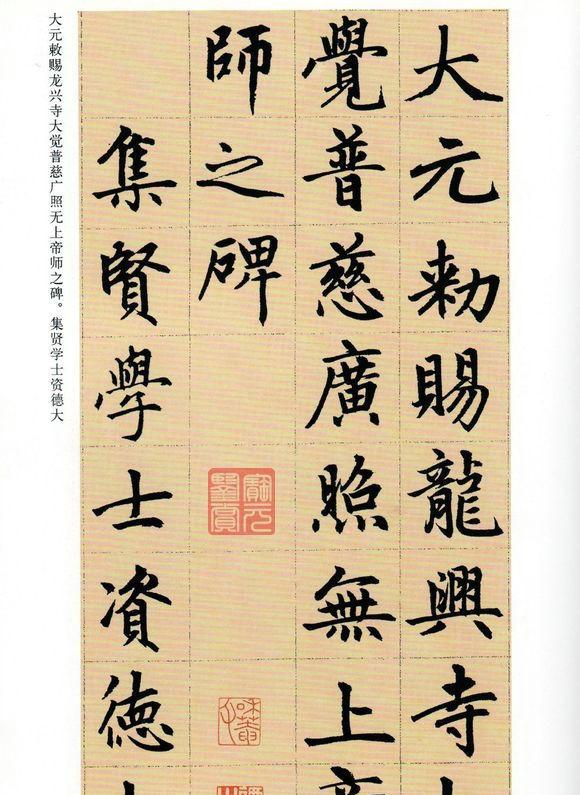 大元敕赐龙兴寺大觉普慈广照无上帝师之碑。集贤学士资德大
大元勑賜龍興寺
覺普慈廣照無上
師之碑
集賢學士資德